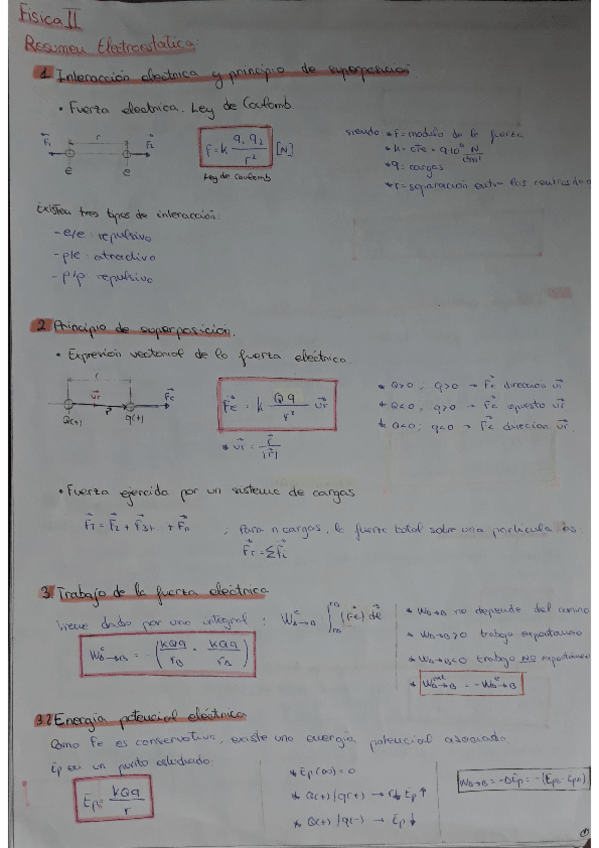 Física II
Resumen Electrostática:
1. Interacción electrica y principio de superposición
• Fuerza electrica. Ley de Coulomb.
F₁ r F₂
e e
F = k q₁ q₂ / r² [N]
Ley de Coulomb
siendo * F = modulo de la fuerza
* k = cte = 9·10⁹ N
* q = cargas
* r = separación entre los centros de
Existen tres tipos de interacción:
- e/e : repulsivo
- p/e : atractivo
- p/p : repulsivo
2. Principio de superposición.
• Expresión vectorial de la fuerza eléctrica
r
ur r Fe
Q(+) q(+)
Fe = k Qq / r² ur
* ur = r / |r|
* Q>0 ; q>0 → Fe direccion ur
* Q<0 ; q>0 → Fe opuesto ur
* Q<0 ; q<0 → Fe direccion ur.
• Fuerza ejercida por un sistema de cargas
FT = F2 + F3+ .. + Fn ; Para n cargas, la fuerza total sobre una particula es:
FT = ΣFi
3. Trabajo de la fuerza eléctrica
Viene dado por una integral :
* WA→B no depende del camino
* WA→B>0 trabajo espontáneo
* WA→B<0 trabajo NO espontáneo
3.2 Energia potencial eléctrica
Como Fe es conservativa, existe una energia potencial asociada.
Ep en un punto estudiado:
Ep = kQq / r
* Ep(∞) = 0
* Q(+) / q(-) → Ep ↓
WA→B = -ΔEp =
1